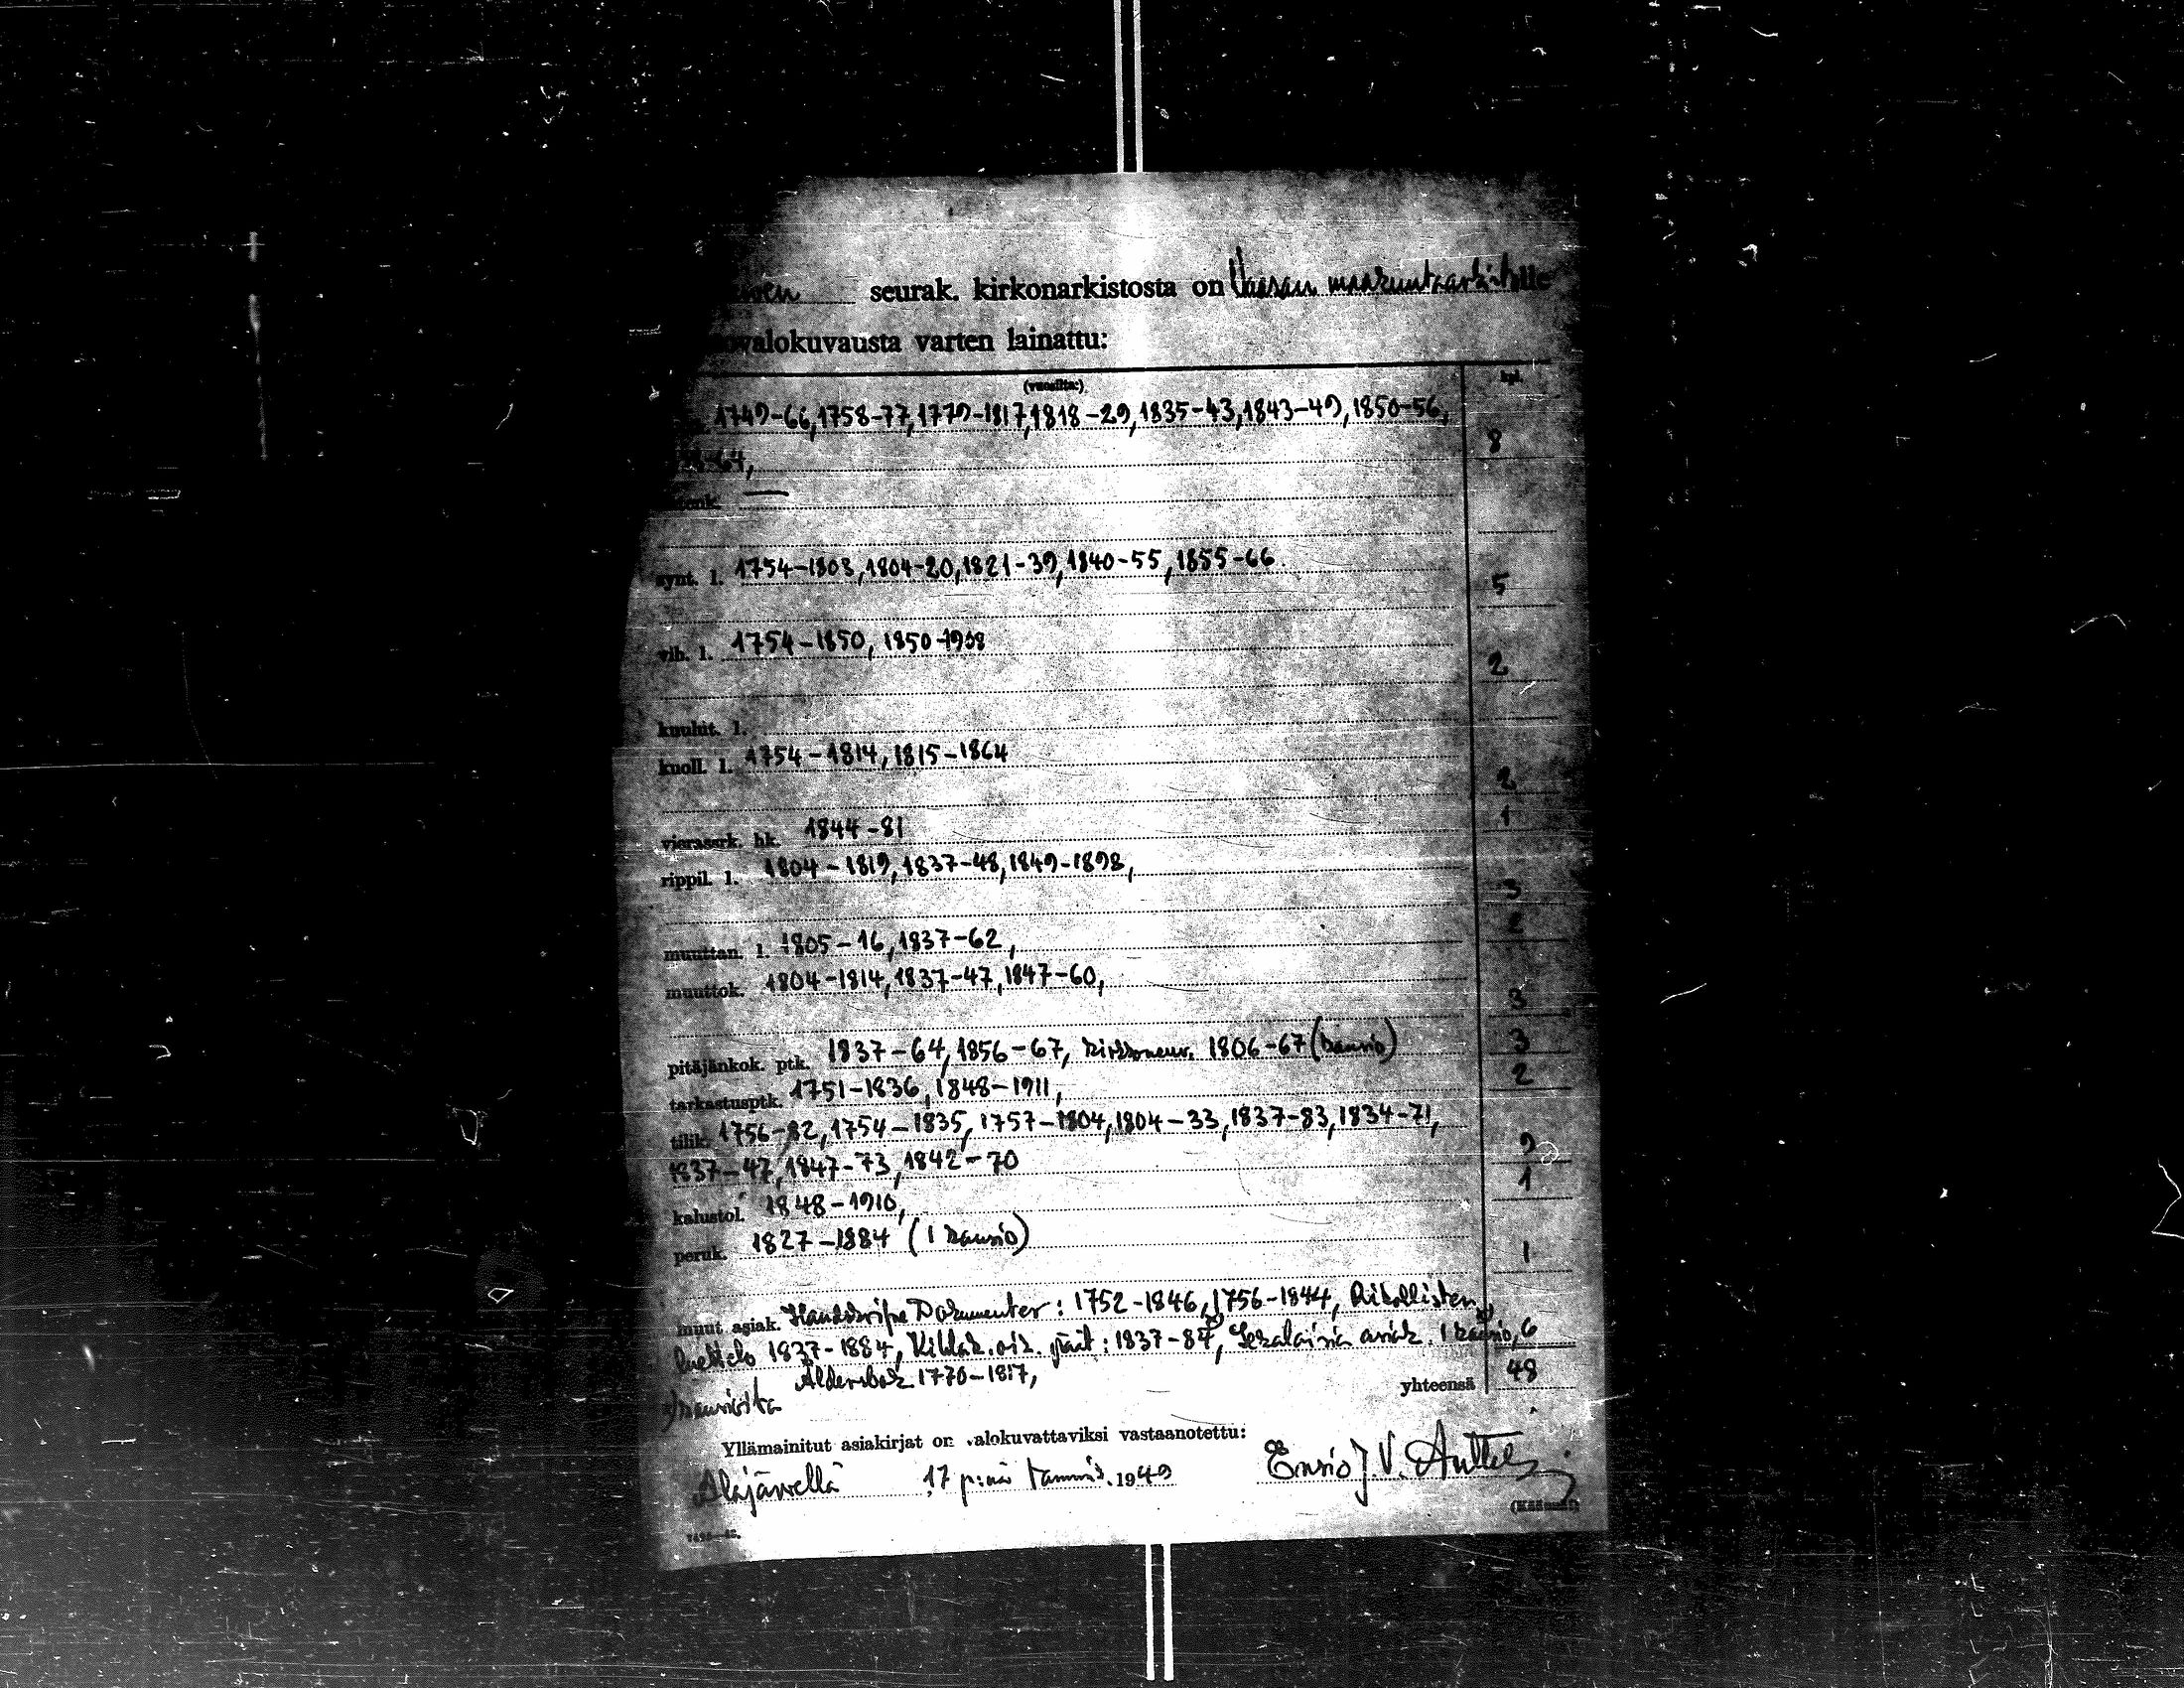 seurak. kirkonarkistosta on Vaasan maakuntaarkistolle
valokuvausta varten lainattu:
(vuosilta:) kpl.
1749-66, 1758-77, 1779-1817, 1818-29, 1835-43, 1843-49, 1850-56,
-64, 8
synt. l. 1754-1803, 1804-20, 1821-39, 1840-55, 1855-66
5
vih. l. 1754-1850, 1850-1908
2
kuulut. l.
kuoll. l. 1754-1814, 1815-1864
2
vierassrk. hk. 1844-81 1
rippil. l. 1804-1819, 1837-48, 1849-1898,
3
muuttan. l. 1805-16, 1837-62, 2
muuttok. 1804-1814, 1837-47, 1847-60,
3
pitäjänkok. ptk. 1837-64, 1856-67, kirkkoneuv. 1806-67 (kansio) 3
tarkastusptk. 1751-1836, 1848-1911, 2
tilik. 1756-82, 1754-1835, 1757-1804, 1804-33, 1837-83, 1834-71,
1837-47, 1847-73, 1842-70 9
kalustol. 1848-1910, 1
peruk. 1827-1884 (1 kansio)
1
muut asiak. Handskrifne Dokumenter: 1752-1846, 1756-1844, Rikollisten
luettelo 1837-1884, Kihlak. oik. päät: 1837-84, Sekalaisia asiak. 1 kansio, 6
Åldersbok 1770-1817,
yhteensä 48
Yllämainitut asiakirjat on valokuvattaviksi vastaanotettu:
Alajärvellä 17 p:nä tammik. 1949 Ensio J. V.